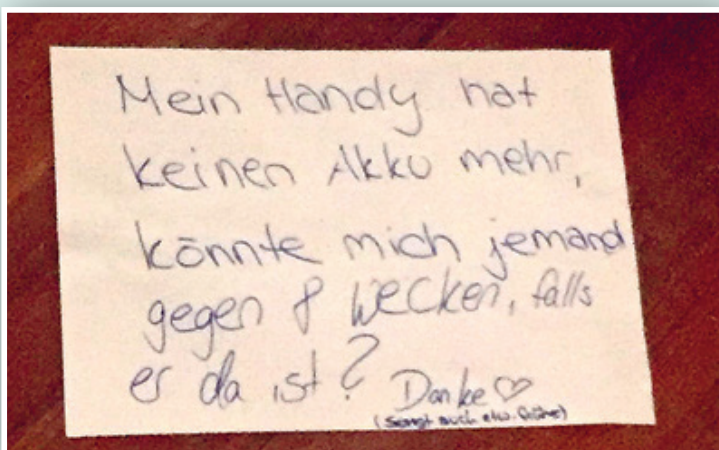 Mein Handy hat
keinen Akku mehr,
könnte mich jemand
gegen 8 wecken, falls
er da ist? Danke ♡
(sonst auch etw. früher)